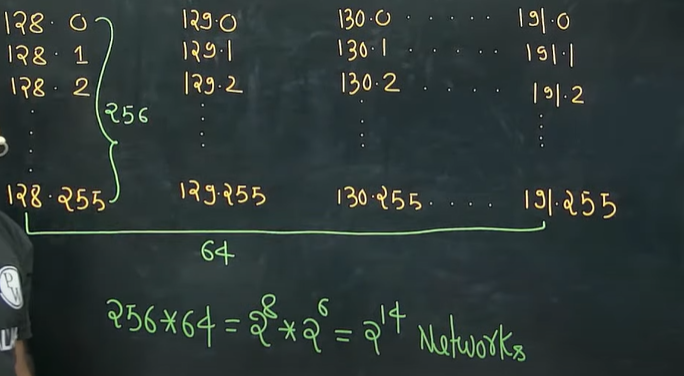 128.0 129.0 130.0 . . . . . . 191.0
128.1 129.1 130.1 . . . . . . 191.1
128.2 129.2 130.2 . . . . . 191.2
256
128.255 129.255 130.255 . . . . 191.255
64
256*64 = 2^8 * 2^6 = 2^14 Networks